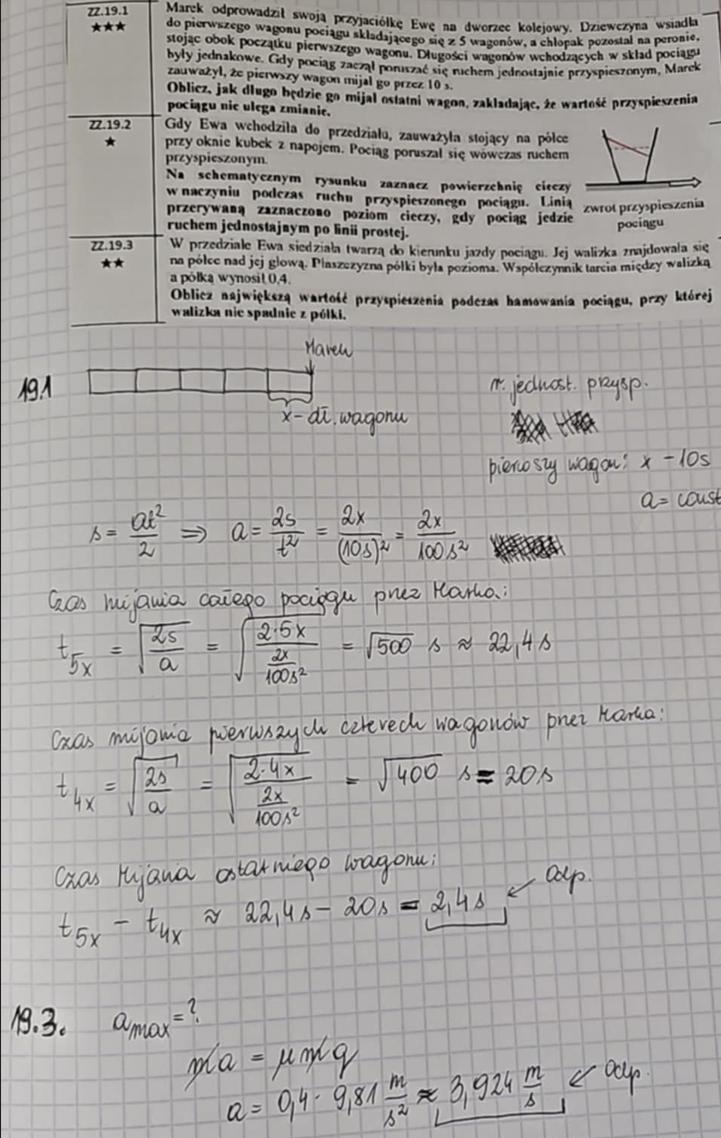 ZZ.19.1
★★★
Marek odprowadził swoją przyjaciółkę Ewę na dworzec kolejowy. Dziewczyna wsiadła
do pierwszego wagonu pociągu składającego się z 5 wagonów, a chłopak pozostał na peronie,
stojąc obok początku pierwszego wagonu. Długości wagonów wchodzących w skład pociągu
były jednakowe. Gdy pociąg zaczął poruszać się ruchem jednostajnie przyspieszonym, Marek
zauważył, że pierwszy wagon mijał go przez 10 s.
Oblicz, jak długo będzie go mijał ostatni wagon, zakładając, że wartość przyspieszenia
pociągu nie ulega zmianie.
ZZ.19.2
★
Gdy Ewa wchodziła do przedziału, zauważyła stojący na półce
przy oknie kubek z napojem. Pociąg poruszał się wówczas ruchem
przyspieszonym.
Na schematycznym rysunku zaznacz powierzchnię cieczy
w naczyniu podczas ruchu przyspieszonego pociągu. Linią
przerywaną zaznaczono poziom cieczy, gdy pociąg jedzie
ruchem jednostajnym po linii prostej.
zwrot przyspieszenia
pociągu
ZZ.19.3
★★
W przedziale Ewa siedziała twarzą do kierunku jazdy pociągu. Jej walizka znajdowała się
na półce nad jej głową. Płaszczyzna półki była pozioma. Współczynnik tarcia między walizką
a półką wynosił 0,4.
Oblicz największą wartość przyspieszenia podczas hamowania pociągu, przy której
walizka nie spadnie z półki.
Marek
19.1
x - dł. wagonu
r. jednost. przysp.
pierwszy wagon: x - 10s
a = const
s = at²/2 ⇒ a = 2s/t² = 2x/(10s)² = 2x/100s²
Czas mijania całego pociągu przez Marka:
t5x = √(2s/a) = √(2·5x/(2x/100s²)) = √500 s ≈ 22,4s
Czas mijania pierwszych czterech wagonów przez Marka:
t4x = √(2s/a) = √(2·4x/(2x/100s²)) = √400 s = 20s
Czas mijania ostatniego wagonu:
t5x - t4x ≈ 22,4s - 20s = 2,4s ↙ odp.
19.3. amax = ?
ma = μmg
a = 0,4 · 9,81 m/s² ≈ 3,924 m/s ↙ odp.